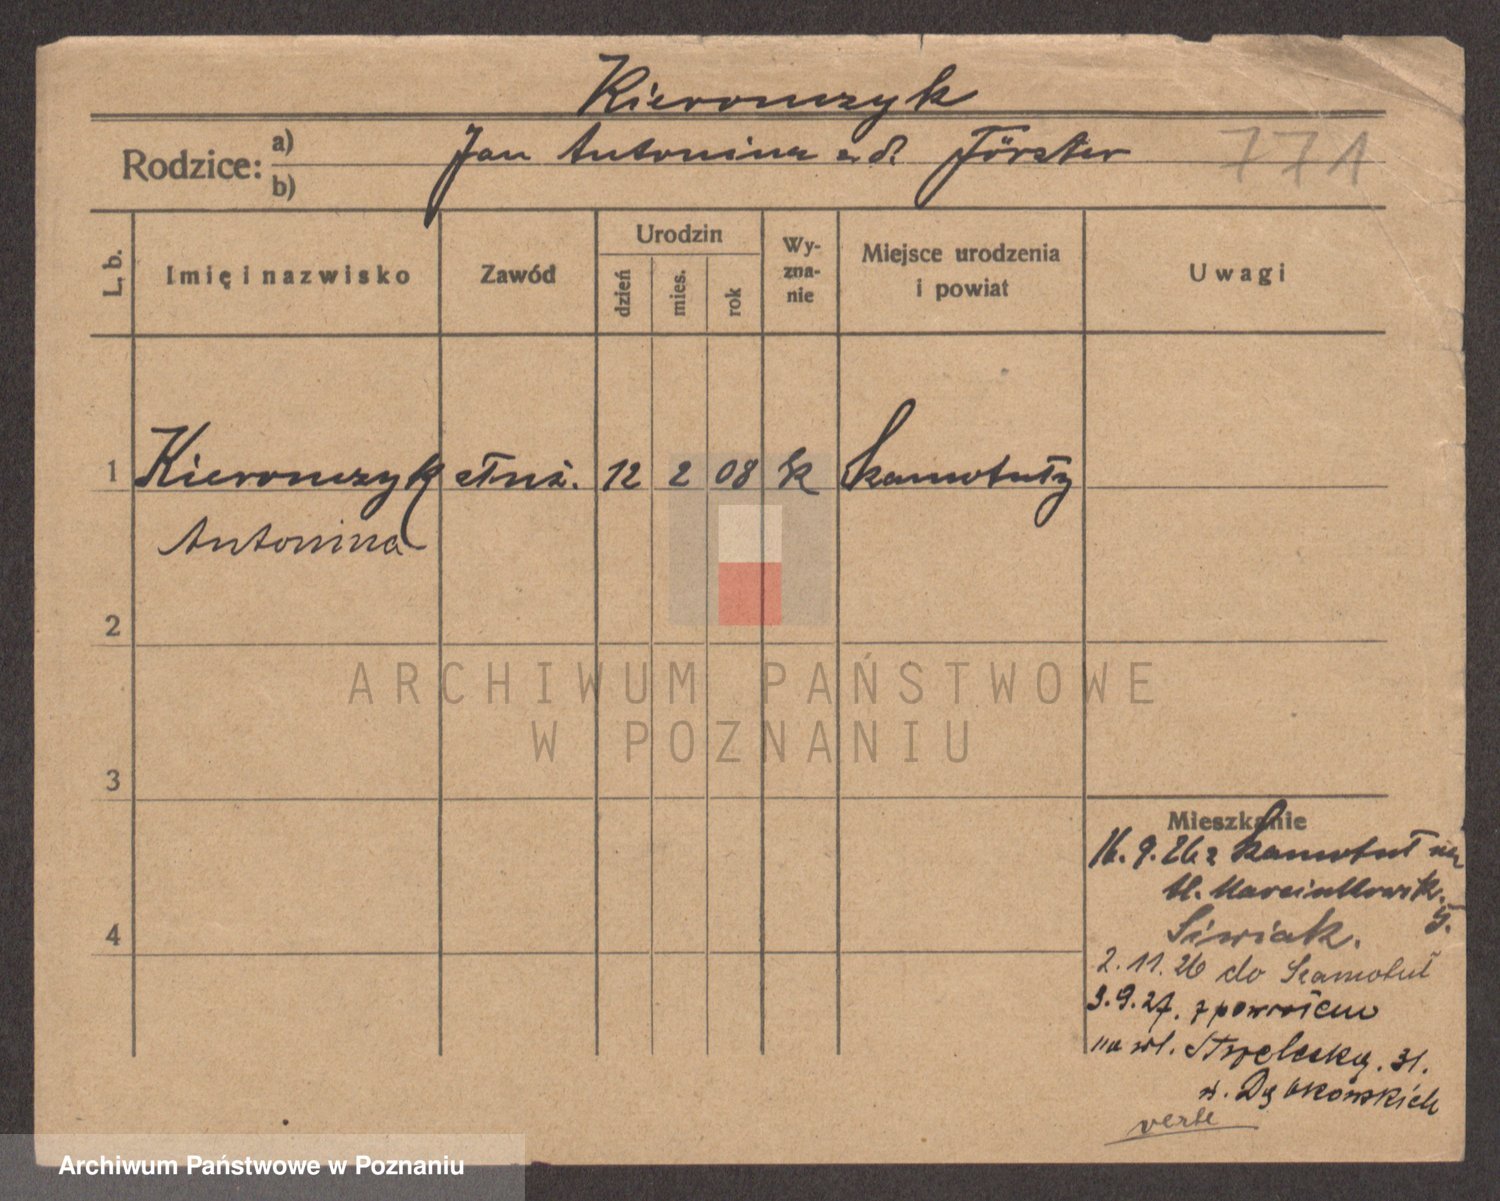 Kieronczyk
Rodzice: a) b) Jan Antonina z d. Förster 771
L. b. Imię i nazwisko Zawód Urodzin dzień mies. rok Wy-zna-nie Miejsce urodzenia i powiat Uwagi
1 Kieronczyk służ. 12 2 08 k Szamotuły
Antonina
2
3
4
Mieszkanie
16.9.26 z Szamotuł na
Marcinkowsk.
5.
Siwiak.
2.11.26 do Szamotuł
3.9.27. z powrotem
na ul. Strzelecką. 31.
u. Dąbkowskich
verte
ARCHIWUM PAŃSTWOWE
W POZNANIU
Archiwum Państwowe w Poznaniu